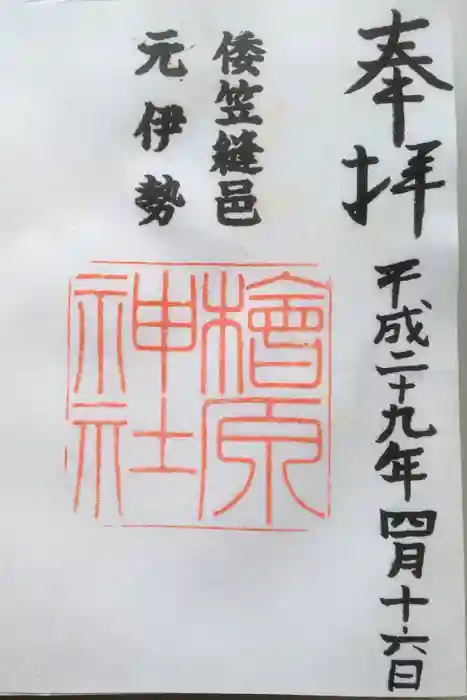 奉拝
平成二十九年四月十六日
倭笠縫邑
元伊勢
檜原
神社